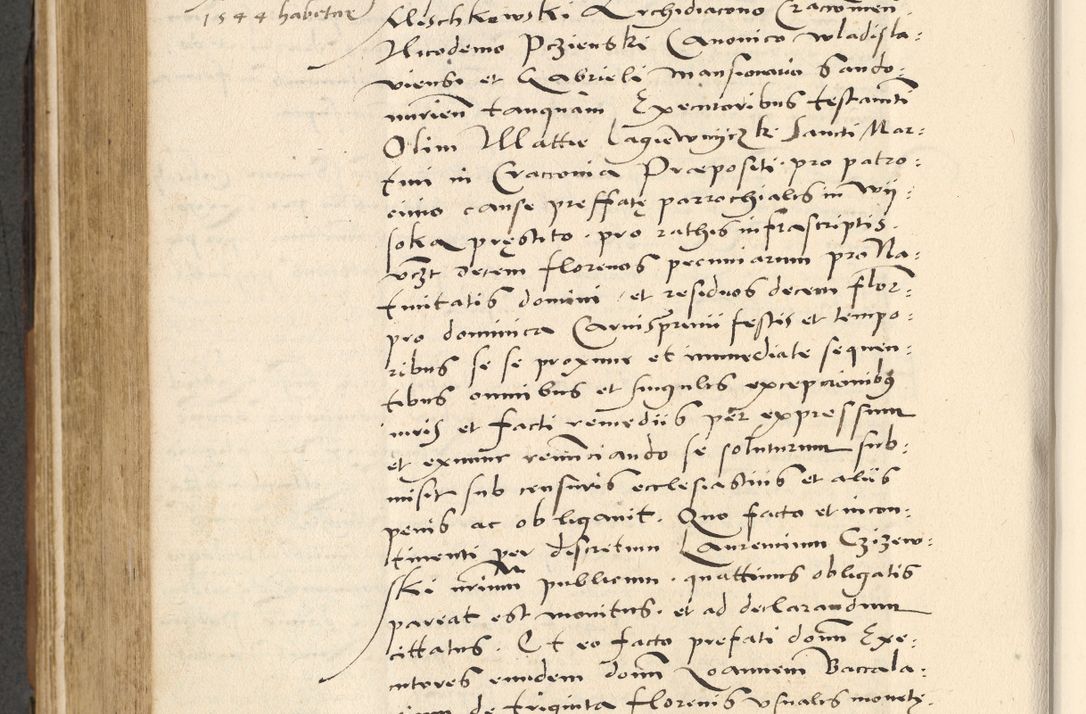 1544 habetur
Pleschkowski Archidiacono Cracovien̄
Nicodemo Pczienski Canonico Wladisla:
viensi et Gabrieli mansionario Sando:
mirien̄ tanquam Executoribus testamti
Olim Mattie Lagiewniczki Sancti Mar:
tini in Cracovia Præpositi pro patro:
cinio cause preffatę parrochialis in Wy:
soka pręstito pro rathis infrascriptis
vczt decem florenos pecuniarum pro Na:
tivitatis domini et residuos decem flor̄:
pro dominica Carnisprivii festis et tempo:
ribus se se proxime et immediate sequen:
tibus omnibus et singulis excepcionibus
iuris et facti remediis per expressum
et exnunc renuncciando se soluturum sub:
misit sub censuris ecclesiasticis et aliis
penis ac obligavit. Quo facto et incon:
tinenti per discretum Laurencium Czizew:
ski nrium publicum quattinus obligatis
pareat est monitus et ad declarandum
cittatus. Et eo facto prefati domn̄ Exe:
cutores eundem domn̄ Joannem Baccala:
rium de triginta florenis usualis monety